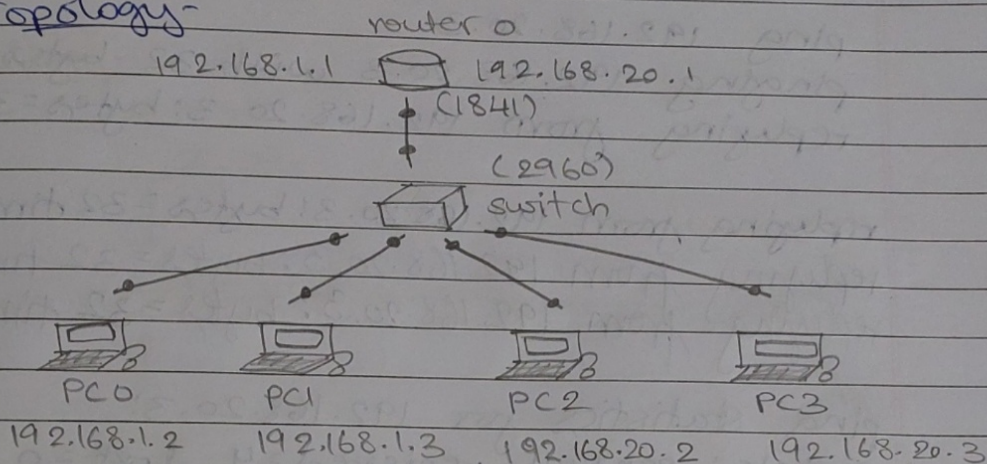 opology-
router 0
192.168.1.1 192.168.20.1
(1841)
(2960)
switch
PC0 PC1 PC2 PC3
192.168.1.2 192.168.1.3 192.168.20.2 192.168.20.3